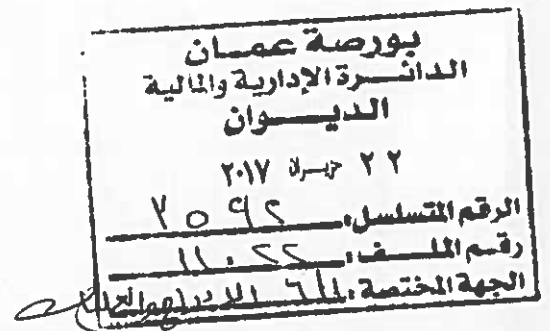 بورصة عمان
الدائرة الإدارية والمالية
الديوان
٢٢ حزيران ٢٠١٧
الرقم المتسلسل: ٧٥٩٢
رقم الملف: ١١٠٢٢
الجهة المختصة: